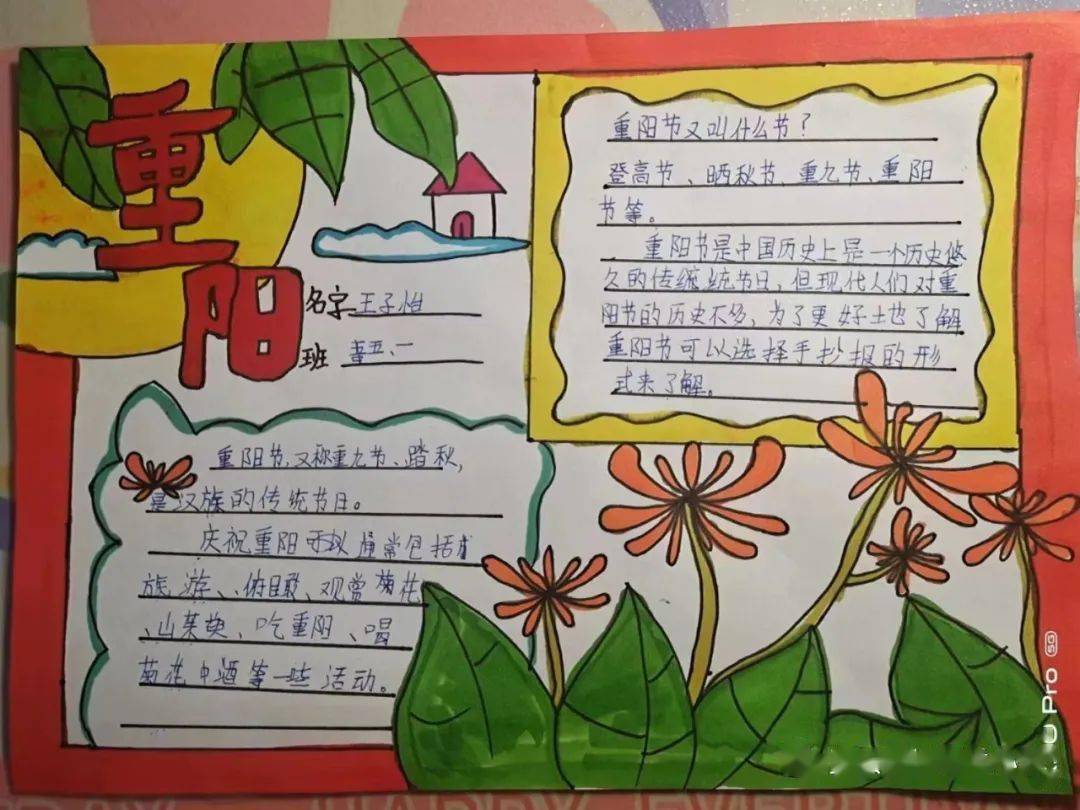 重阳
名字 王子怡
班 五、一
重阳节又叫什么节？
登高节、晒秋节、重九节、重阳
节等。
重阳节是中国历史上是一个历史悠
久的传统统节日，但现代人们对重
阳节的历史不多，为了更好土也了解
重阳节可以选择手抄报的形
式来了解。
重阳节、又称重九节、踏秋，
是汉族的传统节日。
庆祝重阳 通常包括
旅、游、、俯目敢、观赏菊花
、山茱萸、吃重阳、喝
菊花中酒等一些活动。
U Pro 5G
HAPPY EVERY